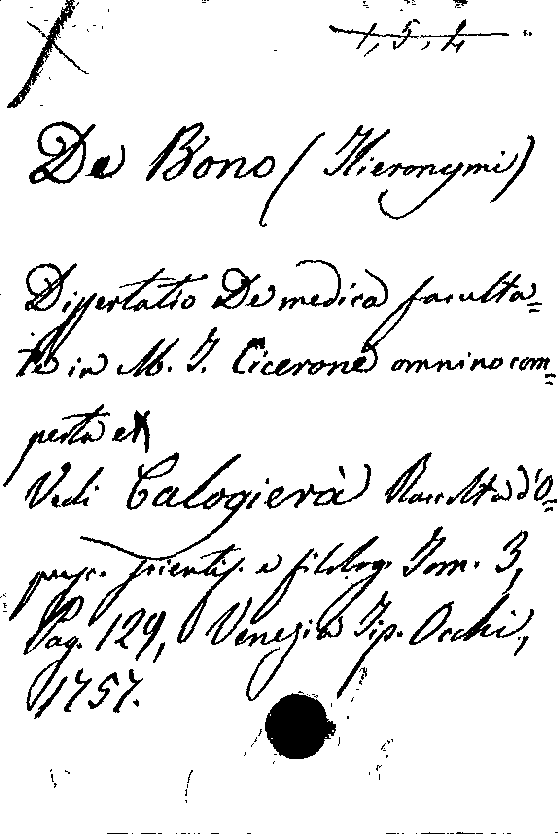 1, 5, 4
De Bono (Hieronymi)
Dissertatio De medica faculta=
te in M. T. Cicerone omnino com=
perta ex
Vedi Calogierà Raccolta d'O=
pusc. scientif. e filolog. Tom. 3,
Pag. 129, Venezia Tip. Occhi,
1757.